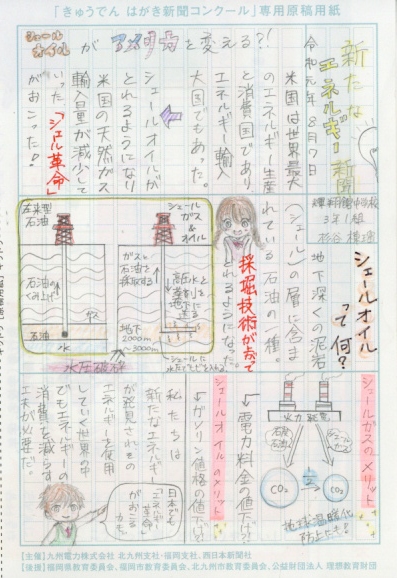 「きゅうでん はがき新聞コンクール」専用原稿用紙
新たな
エネルギー新聞
令和元年8月7日
シェール
オイル
が
アメリカ
を変える?!
米国は世界最大
のエネルギー生産
と消費国であり
エネルギー輸入
大国でもあった。
シェールオイルが
とれるようになり
米国の天然ガス
輸入量が減少して
いった「シェル革命」
がおこった!
中学校
3年1組
シェールオイル
って何?
地下深くの泥岩
(シェール)の層に含ま
れている石油の一種。
採掘技術が
とれるようになった。
従来型
石油
石油の
くみ上げ
石油
水
シェール
ガス
&
オイル
ガスと
石油を
採取する
高圧水と
薬剤を
地下に
送る
地下
2000m
~3000m
シェールに
水圧破砕
シェールガスのメリット
火力発電
石炭
石油
シェール
ガス
CO2
CO2
地球温暖化
防止にも!
↓電力料金の値下げ?!
シェールオイルのメリット
↓ガソリン価格の値下げ?!
私たちは
新たなエネルギー
が発見されその
エネルギーを使用
していく世界の中
でもエネルギーの
消費を減らす
工夫が必要だ。
日本でも
エネルギー
革命が
おこる
かも
【主催】九州電力株式会社 北九州支社・福岡支社、西日本新聞社
【後援】福岡県教育委員会、福岡市教育委員会、北九州市教育委員会、公益財団法人 理想教育財団